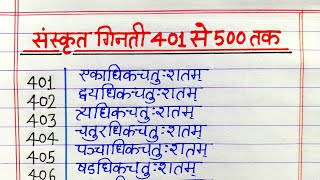 संस्कृत गिनती 401 से 500 तक
401 एकाधिकचतुःशतम्
402 द्वयधिकचतुःशतम्
403 त्र्यधिकचतुःशतम्
404 चतुरधिकचतुःशतम्
405 पञ्चाधिकचतुःशतम्
406 षडधिकचतुःशतम्